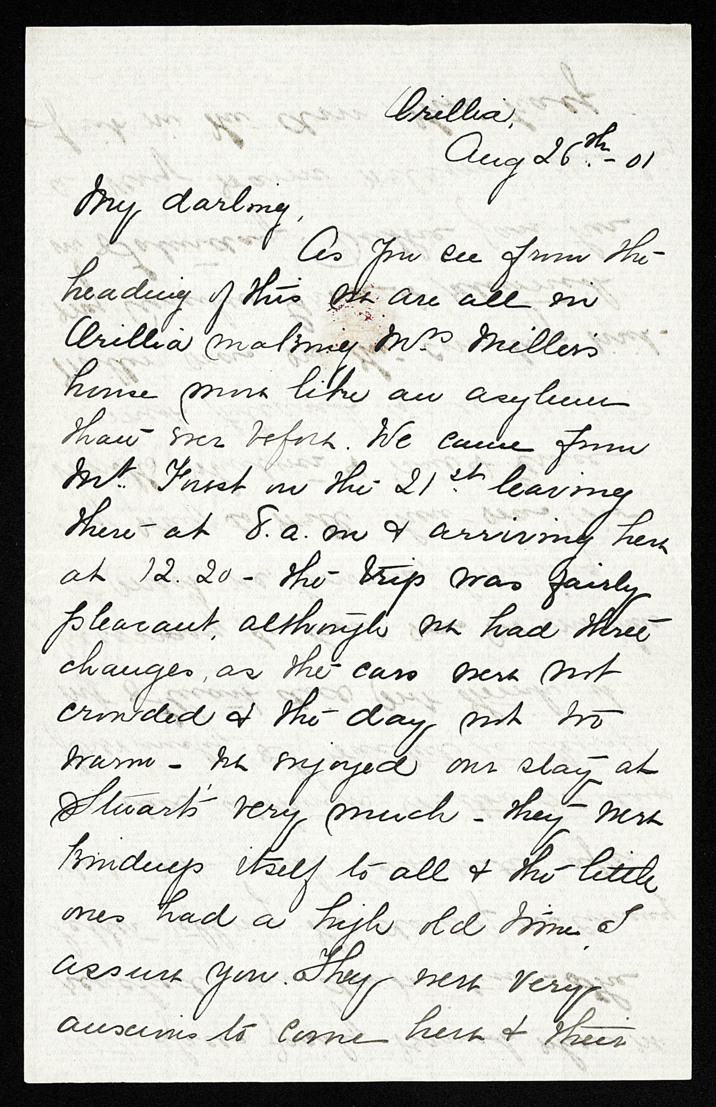 Orillia,
Aug 26th - 01
My darling,
As you see from the
heading of this we are all in
Orillia making Mrs Miller's
house more like an asylum
than ever before. We came from
Mt. Forest on the 21st leaving
there at 8. a. m & arriving here
at 12.20 - the trip was fairly
pleasant, although we had three
changes, as the cars were not
crowded & the day not too
warm - We enjoyed our stay at
Stuart's very much - they were
kindness itself to all & the little
ones had a high old time, I
assure you. They were very
anxious to come here & their